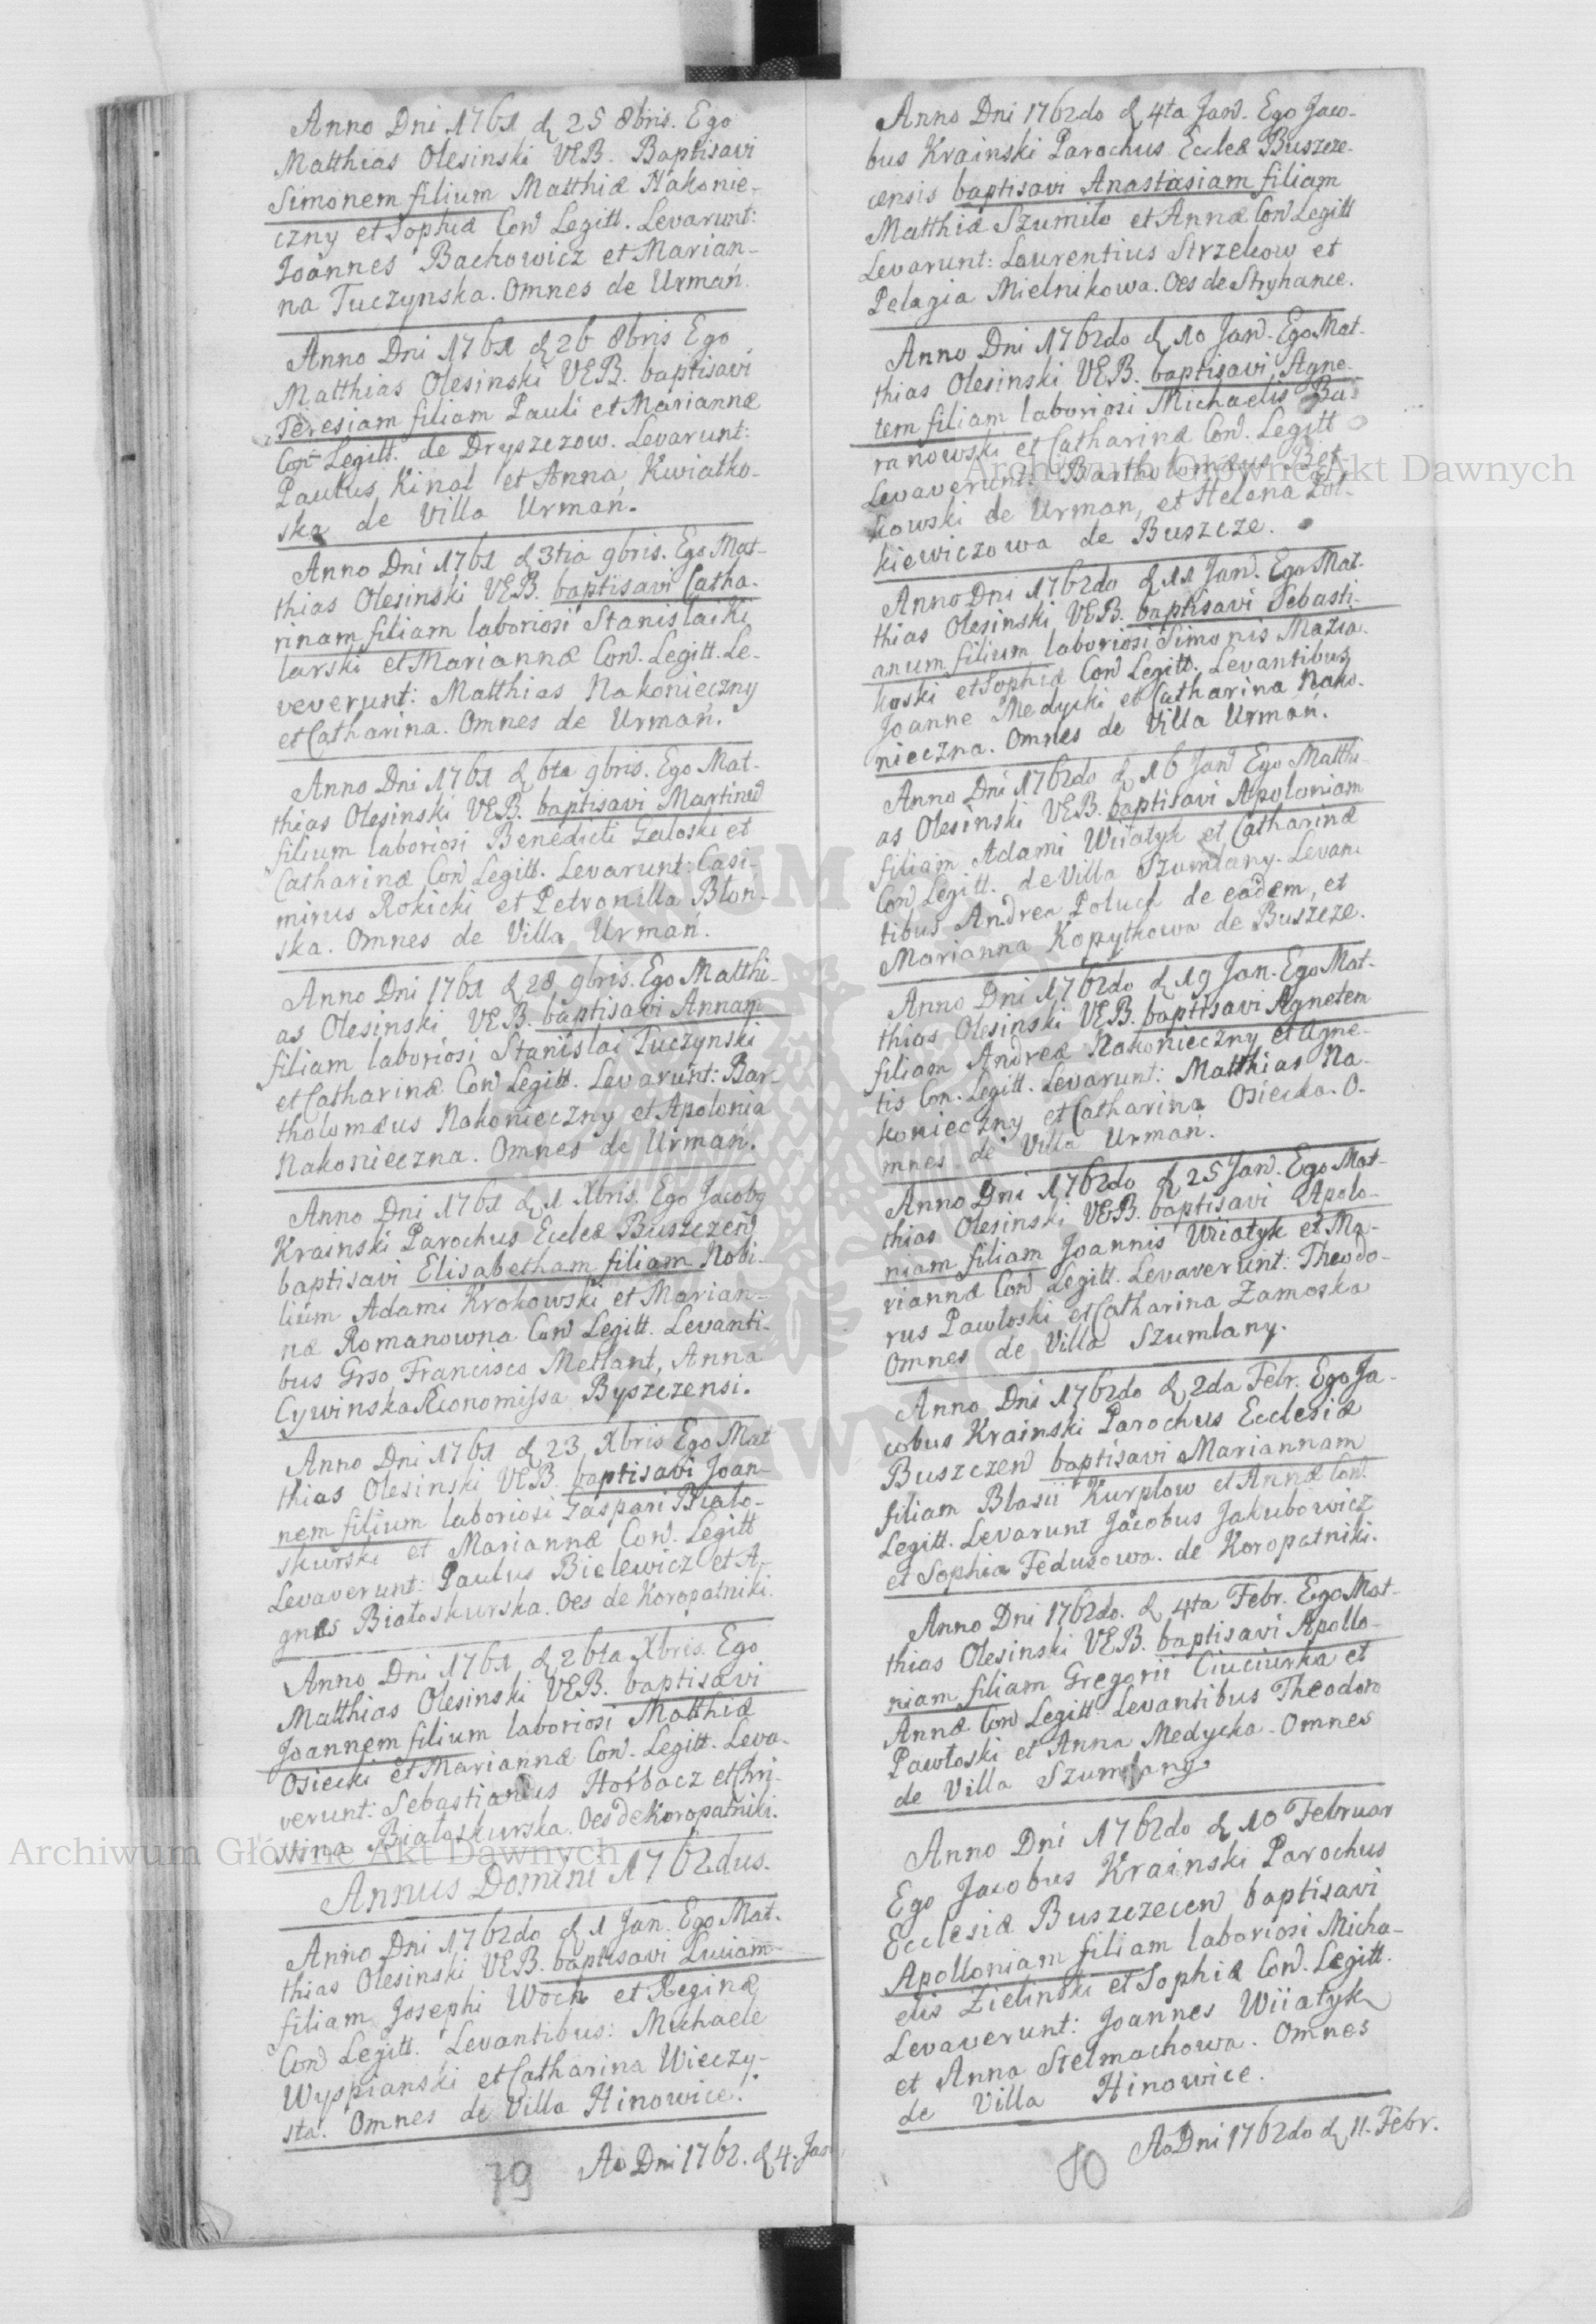 Anno Dni 1761 d 25 8bris. Ego
Matthias Olesinski VEB. Baptisavi
Simonem filium Matthiæ Nakonie-
czny et Sophiæ Con Legitt. Levarunt:
Joannes Bachowicz et Marian-
na Tuczynska. Omnes de Urmań.
Anno Dni 1761 d 26 8bris Ego
Matthias Olesinski VEB. baptisavi
Teresiam filiam Pauli et Mariannæ
Con Legitt. de Dryszczow. Levarunt:
Paulus Kinal et Anna Kwiatko-
ska de Villa Urmań.
Anno Dni 1761 d 3tia 9bris. Ego Mat-
thias Olesinski VEB. baptisavi Catha-
rinam filiam laboriosi Stanislai Ki
larski et Mariannæ Con. Legitt. Le-
veverunt: Matthias Nakonieczny
et Catharina. Omnes de Urmań.
Anno Dni 1761 d 6ta 9bris. Ego Mat-
thias Olesinski VEB. baptisavi Martinū
filium laboriosi Benedicti Galoski et
Catharinæ Con Legitt. Levarunt: Casi-
mirus Rokicki et Petronilla Blon-
ska. Omnes de Villa Urmań.
Anno Dni 1761 d 28 9bris. Ego Matthi-
as Olesinski VEB. baptisavi Annam
filiam laboriosi Stanislai Tuczynski
et Catharinæ Con Legitt. Levarunt: Bar-
tholomæus Nakonieczny et Apolonia
Nakonieczna. Omnes de Urmań.
Anno Dni 1761 d 1 Xbris. Ego Jacobg
Krainski Parochus Eccleæ Buszczen
baptisavi Elisabetham filiam Nobi-
lium Adami Krokowski et Marian-
næ Romanowna Con Legitt. Levanti-
bus Grso Francisco Mellant, Anna
Cywinska Æconomissa Byszczensi.
Anno Dni 1761 d 23 Xbris Ego Mat
thias Olesinski VEB baptisavi Joan-
nem filium laboriosi Gaspari Biało-
skurski et Mariannæ Con. Legitt
Levaverunt: Paulus Bielewicz et A-
gnes Białoskurska. Oes de Koropatniki.
Anno Dni 1761 d 26ta Xbris. Ego
Matthias Olesinski VEB. baptisavi
Joannem filium laboriosi Matthiæ
Osiecki et Mariannæ Con. Legitt. Leva-
verunt: Sebastianus Horbacz et Chri-
stina Białoskurska. Oes de Koropatniki.
Annus Domini 1762dus.
Anno Dni 1762do d 1 Jan. Ego Mat-
thias Olesinski VEB. baptisavi Luciam
filiam Josephi Woch et Reginæ
Con Legitt. Levantibus: Michaele
Wyspianski et Catharina Wieczy-
sta. Omnes de Villa Hinowice.
Ao Dni 1762. d 4. Jan
79
Anno Dni 1762do d 4ta Jan. Ego Jaco-
bus Krainski Parochus Eccleæ Buszcze-
censis baptisavi Anastasiam filiam
Matthiæ Szumilo et Annæ Con Legitt
Levarunt: Laurentius Strzelcow et
Pelagia Mielnikowa. Oes de Stryhance.
Anno Dni 1762do d 10 Jan. Ego Mat-
thias Olesinski VEB. baptisavi Agne-
tem filiam laboriosi Michaelis Ba-
ranowski et Catharinæ Con. Legitt
Levaverunt: Bartholomæus Bet
kowski de Urman, et Helena Zol-
kiewiczowa de Buszcze.
Anno Dni 1762do d 11 Jan. Ego Mat-
thias Olesinski VEB. baptisavi Sebasti-
anum filium laboriosi Simonis Mazia-
koski et Sophiæ Con Legitt. Levantibus
Joanne Medycki et Catharina Nako-
nieczna. Omnes de Villa Urman.
Anno Dni 1762do d 16 Jan Ego Matthi-
as Olesinski VEB. baptisavi Apoloniam
filiam Adami Wiiatyk et Catharinæ
Con Legitt. de Villa Szumlany. Levan-
tibus Andrea Poluch de eadem, et
Marianna Kopytkowa de Buszcze.
Anno Dni 1762do d 19 Jan. Ego Mat-
thias Olesinski VEB. baptisavi Agnetem
filiam Andreæ Nakonieczny et Agne-
tis Con. Legitt. Levarunt: Matthias Na-
konieczny et Catharina Osiecka. O-
mnes de Villa Urman.
Anno Dni 1762do d 25 Jan. Ego Mat-
thias Olesinski VEB. baptisavi Apolo-
niam filiam Joannis Wiiatyk et Ma-
riannæ Con Legitt. Levaverunt: Theodo-
rus Pawloski et Catharina Zamoska
Omnes de Villa Szumlany.
Anno Dni 1762do d 2da Febr. Ego Ja-
cobus Krainski Parochus Ecclesiæ
Buszczen baptisavi Mariannam
filiam Blasii Kurplow et Annæ Con.
Legitt. Levarunt Jacobus Jakubowicz
et Sophia Fedusowa. de Koropatniki.
Anno Dni 1762do. d 4ta Febr. Ego Mat-
thias Olesinski VEB. baptisavi Apollo-
niam filiam Gregorii Ciuciurka et
Annæ Con Legitt Levantibus Theodoro
Pawłoski et Anna Medycka. Omnes
de Villa Szumlany
Anno Dni 1762do d 10 Februar
Ego Jacobus Krainski Parochus
Ecclesiæ Buszczecen baptisavi
Apolloniam filiam laboriosi Micha-
elis Zielinski et Sophiæ Con. Legitt.
Levaverunt: Joannes Wiiatyk
et Anna Stelmachowa. Omnes
de Villa Hinowice.
Ao Dni 1762do d 11. Febr.
80
Archiwum Główne Akt Dawnych
Archiwum Główne Akt Dawnych